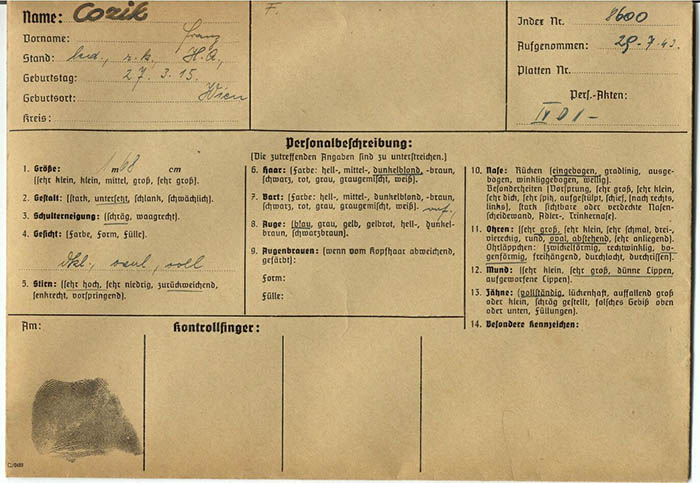 Name: Cozik
Vorname: Franz
Stand: led., r.k., H.A.,
Geburtstag: 27. 3. 15.
Geburtsort: Wien
Kreis:
F.
Index Nr. 8600
Aufgenommen: 29.7.43.
Platten Nr.
Pers.-Akten:
IV D 1 –
Personalbeschreibung:
(Die zutreffenden Angaben sind zu unterstreichen.)
1. Größe: 1 m 68 cm
(sehr klein, klein, mittel, groß, sehr groß).
2. Gestalt: (stark, untersetzt, schlank, schwächlich).
3. Schulterneigung: (schräg, waagrecht).
4. Gesicht: (Farbe, Form, Fülle).
dkl., oval, voll
5. Stirn: (sehr hoch, sehr niedrig, zurückweichend,
senkrecht, vorspringend).
6. Haar: (Farbe: hell-, mittel-, dunkelblond, -braun,
schwarz, rot, grau, graugemischt, weiß).
7. Bart: (Farbe: hell-, mittel-, dunkelblond, -braun,
schwarz, rot, grau, graugemischt, weiß).
8. Auge: (blau, grau, gelb, gelbrot, hell-, dunkel-
braun, schwarzbraun).
9. Augenbrauen: (wenn vom Kopfhaar abweichend,
gefärbt):
Form:
Fülle:
10. Nase: Rücken (eingebogen, gradlinig, ausge-
bogen, winkliggebogen, wellig).
Besonderheiten (Vorsprung, sehr groß, sehr klein,
sehr dick, sehr spitz, aufgestülpt, schief, [nach rechts,
links], stark sichtbare oder verdeckte Nasen-
scheidewand, Adler-, Trinkernase).
11. Ohren: (sehr groß, sehr klein, sehr schmal, drei-
viereckig, rund, oval, abstehend, sehr anliegend).
Ohrläppchen: (zwickelförmig, rechtwinklig, bo-
genförmig, freihängend, durchlocht, durchrissen).
12. Mund: (sehr klein, sehr groß, dünne Lippen,
aufgeworfene Lippen).
13. Zähne: (vollständig, lückenhaft, auffallend groß
oder klein, schräg gestellt, falsches Gebiß oben
oder unten, Füllungen).
14. Besondere Kennzeichen:
Am:
Kontrollfinger: